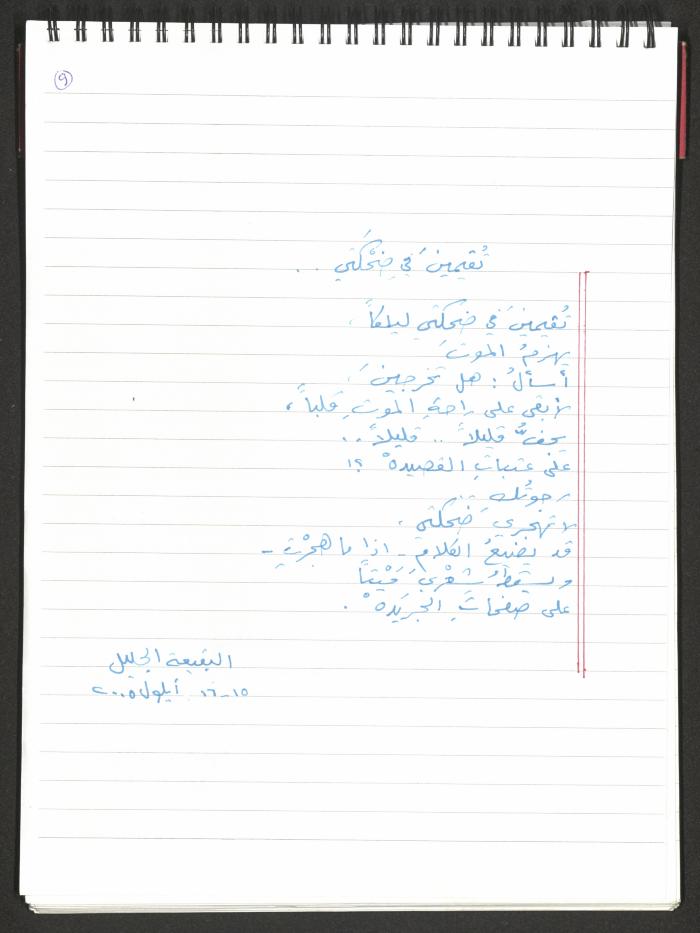 ٩
تُقيمينَ في ضِحْكَتي . .
تُقيمينَ في ضحكتي ليلكاً ،
يهزمُ الموتَ
أسألُ : هل تخرجينَ ،
لأبقى على راحةِ الموتِ قلباً ،
يجفُّ قليلاً .. قليلاً ..
على عتباتِ القصيدهْ ؟!
رجوتُكِ ..
لا تهجري ضحكتي ،
قد يضيعُ الكلامُ - اذا ما هجرْتِ -
ويسقطُ شِعْري مَيْتاً
على صفحاتِ الجريدهْ .
البقيعة الجليل
١٥-١٦ أيلول ٢٠٠٥